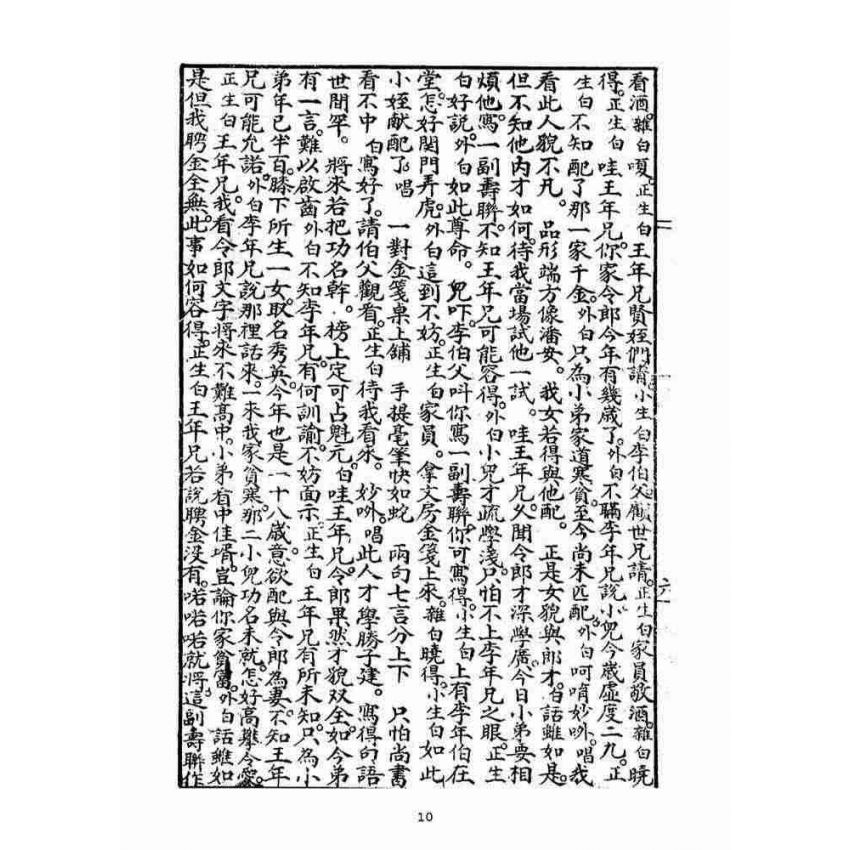 看酒。雜白嗄。正生白王年兄賢姪們請。小生白李伯父戲世兄請。正生白家員敬酒。雜白曉
得。正生白哇王年兄。你家令郎今年有幾歲了。外白不瞞李年兄說。小兒今歲虛度二九。正
生白不知配了那一家千金。外白只為小弟家道寒貧。至今尚未匹配。外白呵唷妙吓。唱我
看此人貌不凡。品形端方像潘安。我女若得與他配。正是女貌與郎才。白話雖如是。
但不知他內才如何。待我當場試他一試。哇王年兄久聞令郎才深學廣。今日小弟要相
煩他。寫一副壽聯。不知王年兄可能容得。外白小兒才疏學淺。只怕不上李年兄之眼。正生
白好說。外白如此尊命。兒吓。李伯父叫你寫一副壽聯。你可寫得。小生白上有李年伯在
堂。怎好関門弄虎。外白這到不妨。正生白家員。拿文房金箋上來。雜白曉得。小生白如此
小姪献配了。唱一對金箋桌上舖手提毫筆快如蛇兩句七言分上下只怕尚書
看不中白寫好了。請伯父觀看。正生白待我看來。妙吓。唱此人才學勝子建。寫得句語
世間罕。將來若把功名幹。榜上定可占魁元。白哇王年兄。令郎果然才貌双全。如今弟
有一言。難以啟齒外白不知李年兄。有何訓諭。不妨面示。正生白王年兄有所未知。只為小
弟年已半百。膝下所生一女。取名秀英。今年也是一十八歲。意欲配與令郎為妻。不知王年
兄可能允諾。外白李年兄說那裡話來。一來我家貧寒。那二小兒功名未就。怎好高攀令愛。
正生白王年兄。我看令郎文字將來不難高中。小弟看中佳壻。豈論你家貧富。外白話雖如
是但我聘金全無。此事如何容得。正生白王年兄若說聘金沒有。喏喏喏就將這副壽聯作
二
六
10